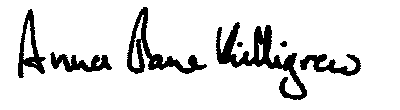 Anna Jane Killigrew